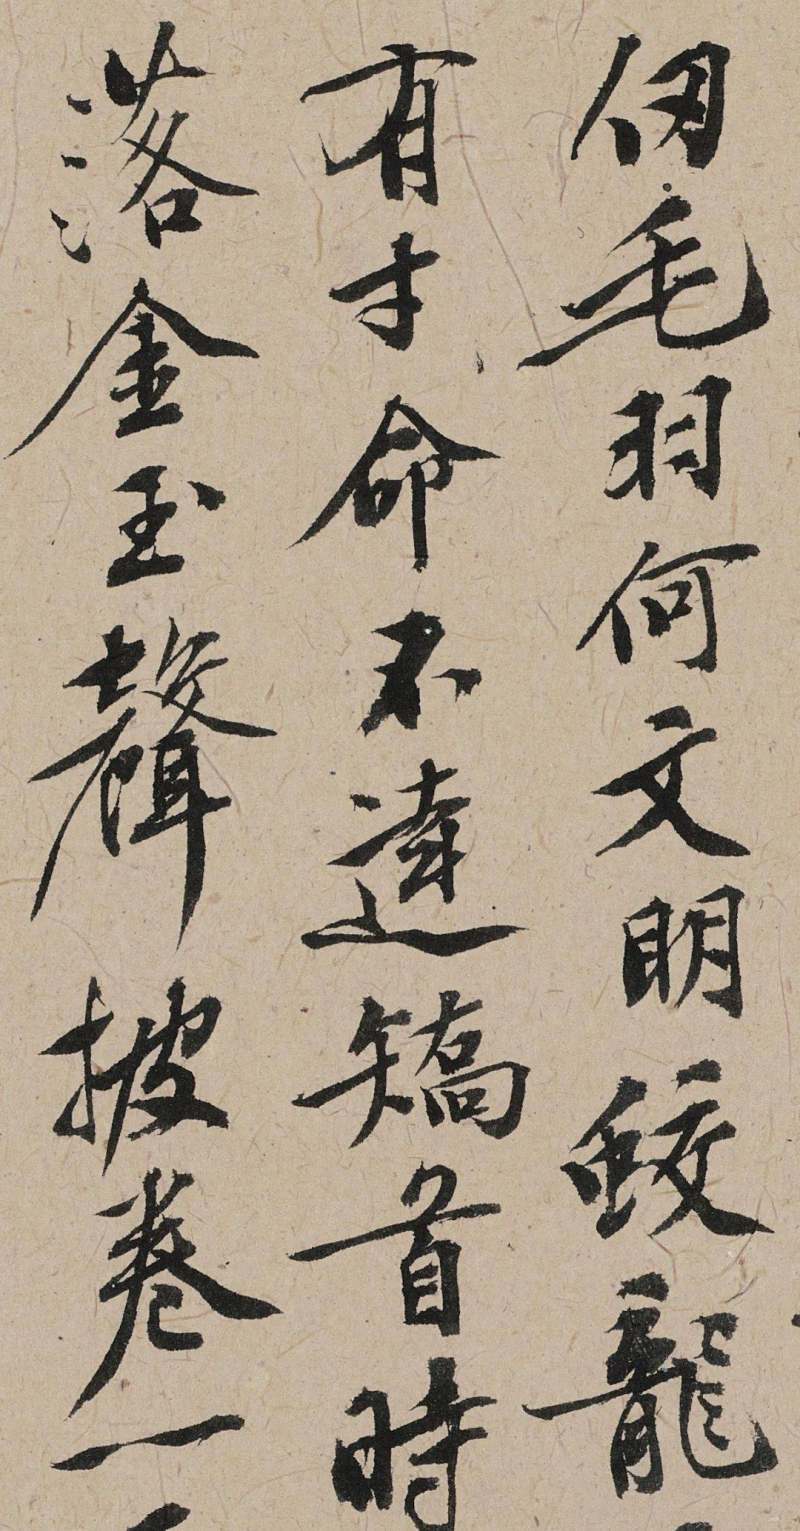 仞毛羽何文明蛟龍
有才命不達矯首時
落金玉聲披卷一